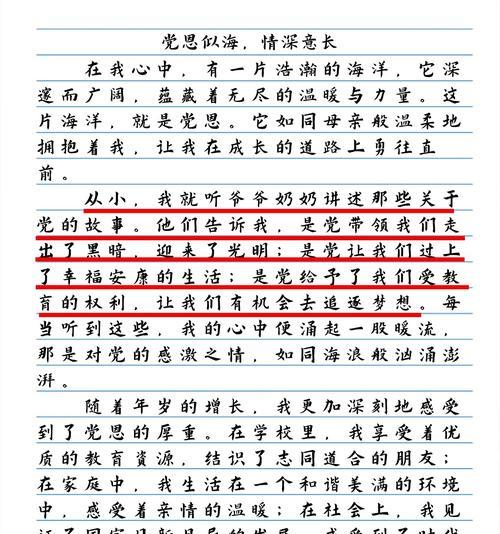 党恩似海，情深意长
在我心中，有一片浩瀚的海洋，它深
邃而广阔，蕴藏着无尽的温暖与力量。这
片海洋，就是党恩。它如同母亲般温柔地
拥抱着我，让我在成长的道路上勇往直
前。
从小，我就听爷爷奶奶讲述那些关于
党的故事。他们告诉我，是党带领我们走
出了黑暗，迎来了光明；是党让我们过上
了幸福安康的生活；是党给予了我们受教
育的权利，让我们有机会去追逐梦想。每
当听到这些，我的心中便涌起一股暖流，
那是对党的感激之情，如同海浪般汹涌澎
湃。
随着年岁的增长，我更加深刻地感受
到了党恩的厚重。在学校里，我享受着优
质的教育资源，结识了志同道合的朋友；
在家庭中，我生活在一个和谐美满的环境
中，感受着亲情的温暖；在社会上，我见